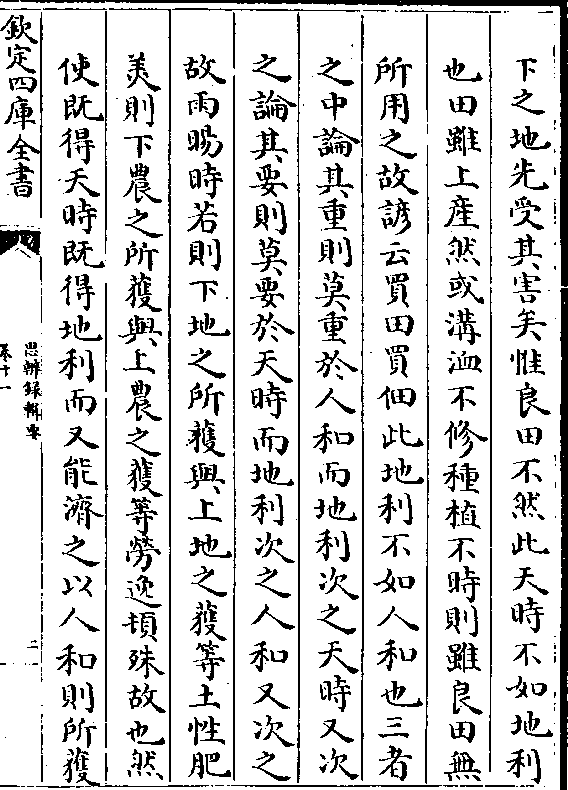 下之地先受其害矣惟良田不然此天時不如地利
也田雖上產然或溝洫不修種植不時則雖良田無
所用之故諺云買田買佃此地利不如人和也三者
之中論其重則莫重於人和而地利次之天時又次
之論其要則莫要於天時而地利次之人和又次之
故雨暘時若則下地之所獲與上地之獲等土性肥
美則下農之所獲與上農之獲等勞逸頓殊故也然
使既得天時既得地利而又能濟之以人和則所獲
欽定四庫全書
思辨録輯要
卷十一
二